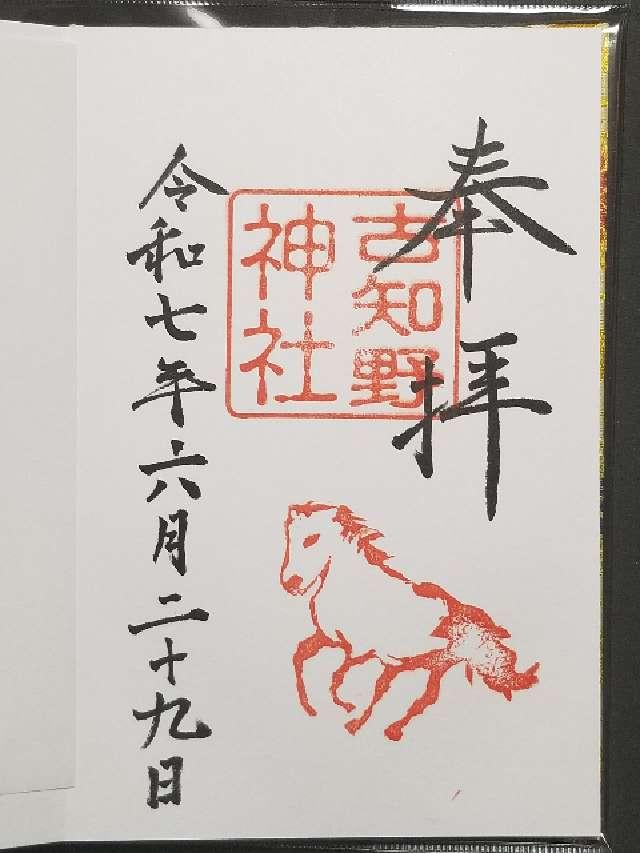 奉拝
古知野
神社
令和七年六月二十九日